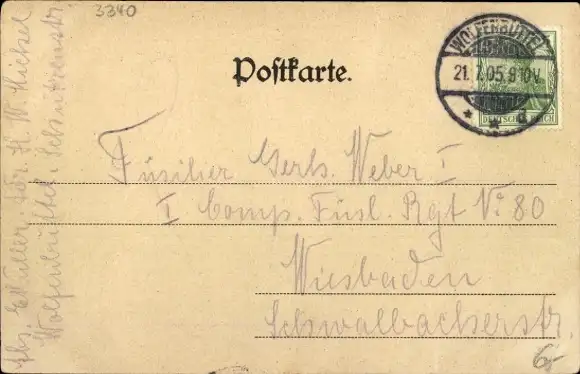 3340
WOLFENBÜTTEL
21.7.05.9-10V.
* * d
DEUTSCHES REICH
Postkarte.
Füsilier Gerh. Weber I
I Comp. Füsl. Rgt No 80
Wiesbaden
Schwalbacherstr.
6,-
Abs. E. Müller. H. W.
Wolfenbüttel